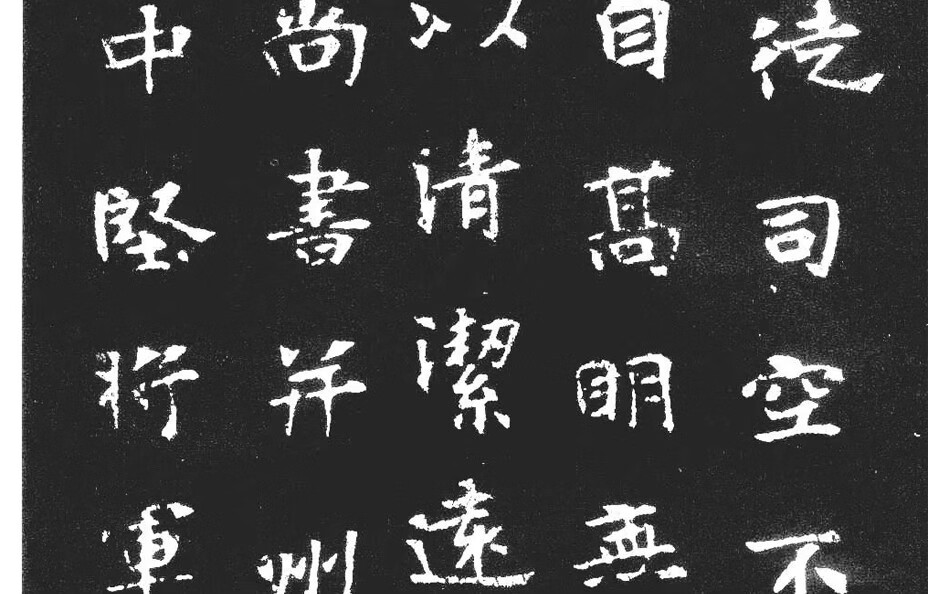 從司空不
自高明無
以清潔遠
尚書并州
中堅將軍